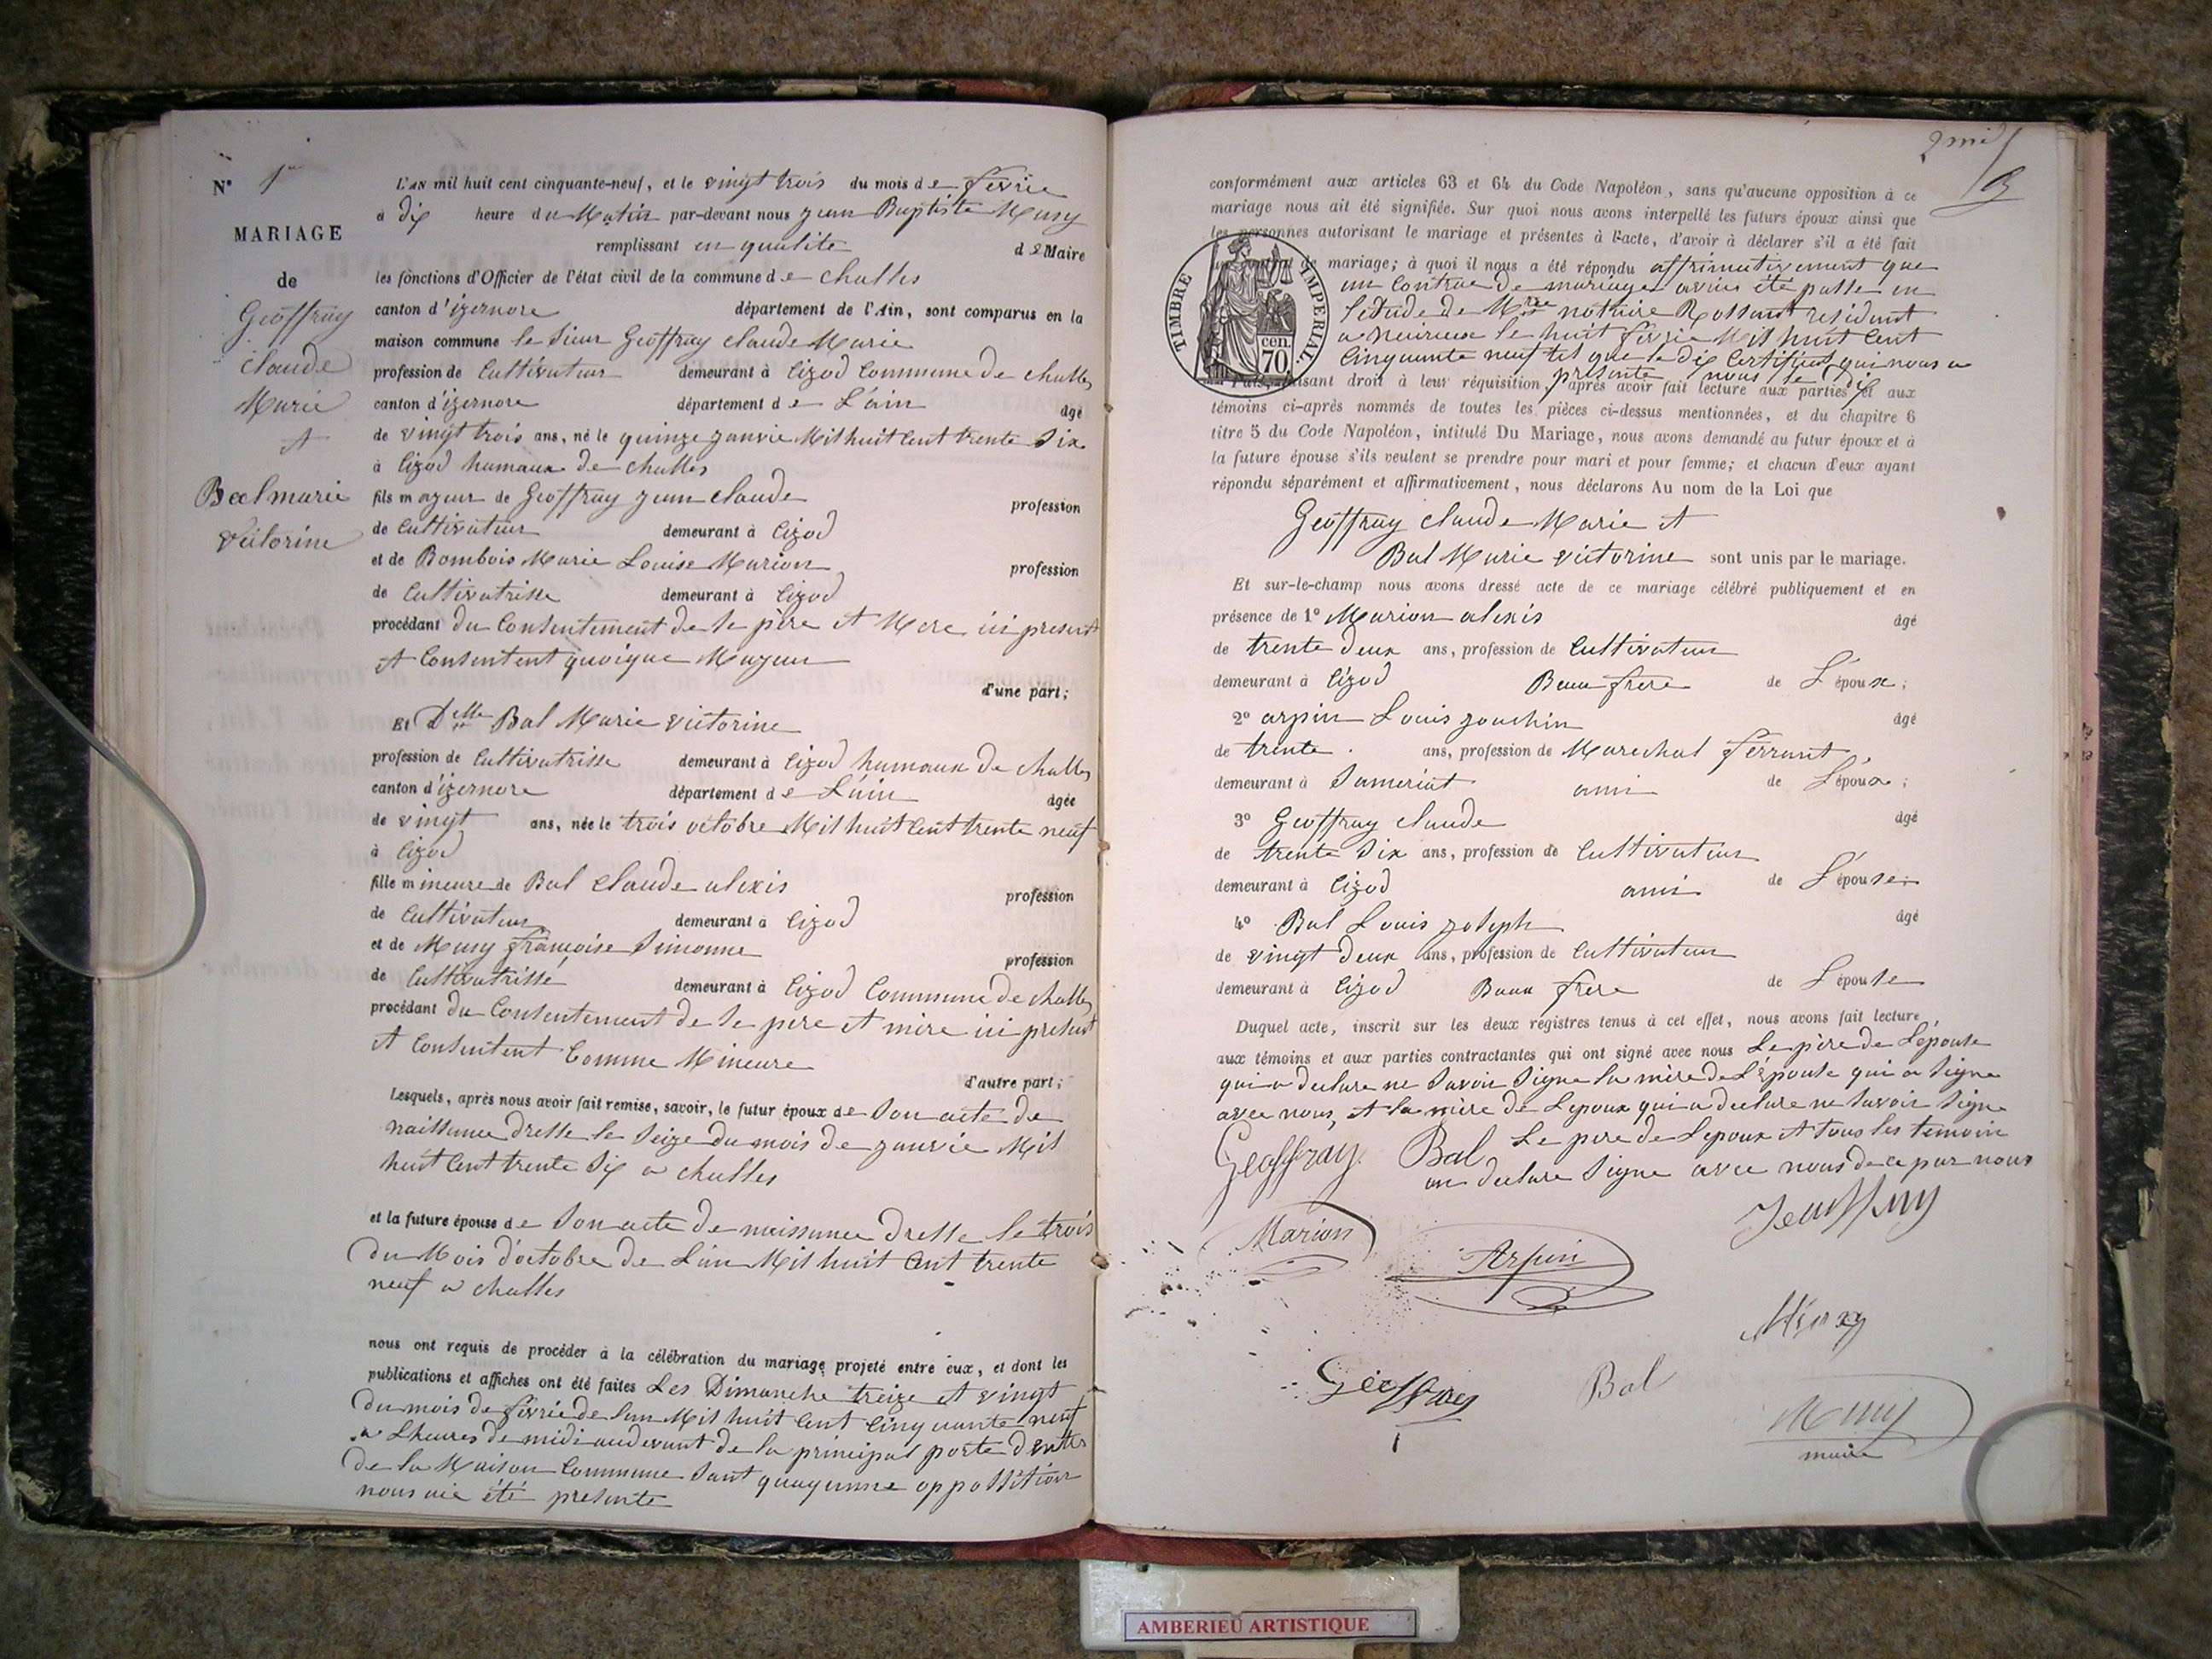 N° 1er
MARIAGE
de
Geoffray
Claude
Marie
et
Bal marie
Victorine
L'AN mil huit cent cinquante-neuf, et le vingt trois du mois de fevrie
à dix heure du Matin par-devant nous jean Baptiste Musy
remplissant en qualite de Maire
les fonctions d'Officier de l'état civil de la commune de challes
canton d'izernore département de l'Ain, sont comparus en la
maison commune le Sieur Geoffray claude Marie
profession de Cultivateur demeurant à Cizod Commune de challes
canton d'izernore département de L'ain âgé
de vingt trois ans, né le quinze janvie Mil huit Cent trente Six
à Cizod hamaux de challes
fils majeur de Geoffray jean claude profession
de Cultivateur demeurant à Cizod
et de Bombois Marie Louise Marion profession
de Cultivatrisse demeurant à Cizod
procédant du Consentement de se père et Mere ici present
et Consentent quoique Majeur
d'une part;
Et Delle Bal Marie victorine
profession de Cultivatrisse demeurant à Cizod hamaux de challes
canton d'izernore département de L'ain âgée
de vingt ans, née le trois octobre Mil huit Cent trente neuf
à Cizod
fille mineure de Bal Claude alexis profession
de Cultivateur demeurant à Cizod
et de Musy françoise Simonne profession
de Cultivatrisse demeurant à Cizod Commune de challes
procédant du Consentement de se pere et mère ici present
et Consentent Comme Mineure
d'autre part;
Lesquels, après nous avoir fait remise, savoir, le futur époux de Son acte de
naissance dresse le Seize du mois de janvie Mil
huit Cent trente Six a challes
et la future épouse de Son acte de naissance dresse le trois
du Mois d'octobre de L'an Mil huit Cent trente
neuf a challes
nous ont requis de procéder à la célébration du mariage projeté entre eux, et dont les
publications et affiches ont été faites Les Dimanche treize et vingt
du mois de fevrie de lan Mil huit Cent Cinquante neuf
a Lheures de midi audevant de la principal porte d'entre
de la Maison Commune Sant quaqunne oppossition
nous aie été presente
conformément aux articles 63 et 64 du Code Napoléon, sans qu'aucune opposition à ce
mariage nous ait été signifiée. Sur quoi nous avons interpellé les futurs époux ainsi que
les personnes autorisant le mariage et présentes à l'acte, d'avoir à déclarer s'il a été fait
de mariage; à quoi il nous a été répondu affrimativement que
un Contrae de mariage avais été passe en
Letude de Mtre notaire Rossant residant
a neireux le huit fevrie Mil huit Cent
Cinquante neuf tel que le dix Certificat qui nous a
presente nous le dit
TIMBRE IMPERIAL.
cen.
70
faisant droit à leur réquisition, après avoir fait lecture aux parties et aux
témoins ci-après nommés de toutes les pièces ci-dessus mentionnées, et du chapitre 6
titre 5 du Code Napoléon, intitulé Du Mariage, nous avons demandé au futur époux et à
la future épouse s'ils veulent se prendre pour mari et pour femme; et chacun d'eux ayant
répondu séparément et affirmativement, nous déclarons Au nom de la Loi que
Geoffray claude Marie et
Bal Marie victorine sont unis par le mariage.
Et sur-le-champ nous avons dressé acte de ce mariage célébré publiquement et en
présence de 1° Marion alexis âgé
de trente deux ans, profession de Cultivateur
demeurant à Cizod Beau frere de L'épouse;
2° arpin Louis joachin âgé
de trente ans, profession de Marechal ferrant
demeurant à Sameriat ami de L'époux;
3° Geoffray claude âgé
de trente Six ans, profession de Cultivateur
demeurant à Cizod ami de L'épouse;
4° Bal Louis joseph âgé
de vingt deux ans, profession de Cultivateur
demeurant à Cizod Beau frere de L'épouse
Duquel acte, inscrit sur les deux registres tenus à cet effet, nous avons fait lecture
aux témoins et aux parties contractantes qui ont signé avec nous Le père de Lépouse
qui a declare ne Savoir Signe la mère de L'épouse qui a Signe
avec nous, et la mère de Lepoux qui a declare ne Savoir Signe
Le pere de Lepoux et tous les temoin
on declare Signe avec nous de ce par nous
Geoffray Bal
Marion Arpin
Geoffray Bal
Musy
maire
AMBERIEU ARTISTIQUE